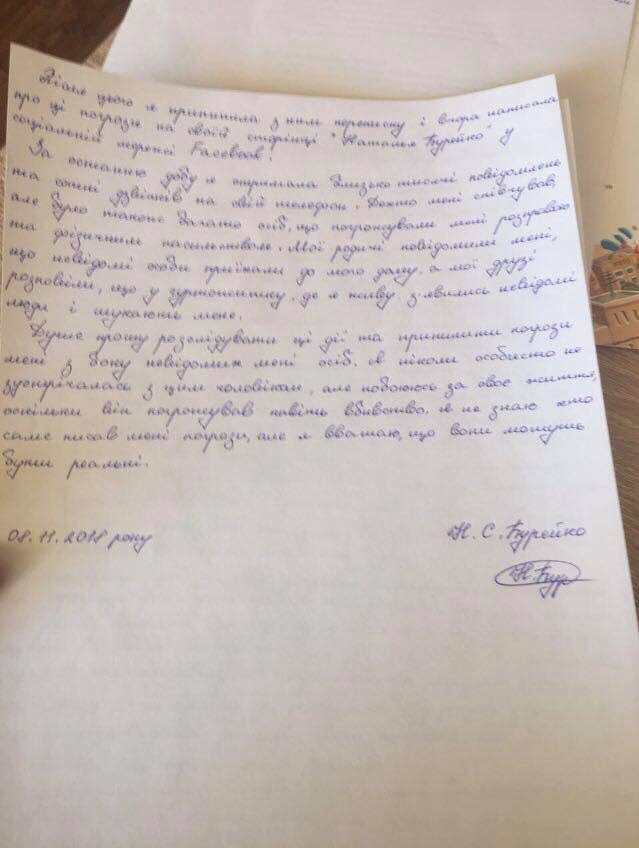 Після цього я припинила з ним переписку і вчора написала
про ці погрози на своїй сторінці "Наталья Бурейко" у
соціальній мережі Facebook!
За останню добу я отримала близько тисячі повідомлень
та сотні дзвінків на свій телефон. Дехто мені співчував,
але було також багато осіб, що погрожували мені розправою
та фізичним насильством. Мої родичі повідомили мені,
що невідомі особи приїхали до мого дому, а мої друзі
розповіли, що у гуртожитку, де я живу з'явились невідомі
люди і шукають мене.
Дуже прошу розслідувати ці дії та припинити погрози
мені з боку невідомих мені осіб. Я ніколи особисто не
зустрічалась з цим чоловіком, але побоююсь за своє життя,
оскільки він погрожував навіть вбивством. Я не знаю хто
саме писав мені погрози, але я вважаю, що вони можуть
бути реальні.
08.11.2018 року
Н. С. Бурейко
Н.Бур